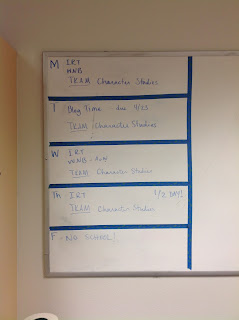 M IRT
WNB
TKAM Character Studies
T Blog Time - due 4/25
TKAM Character Studies
W IRT
WNB -
TKAM Character Studies
Th IRT 1/2 DAY!
TKAM Character Studies
F - NO SCHOOL!